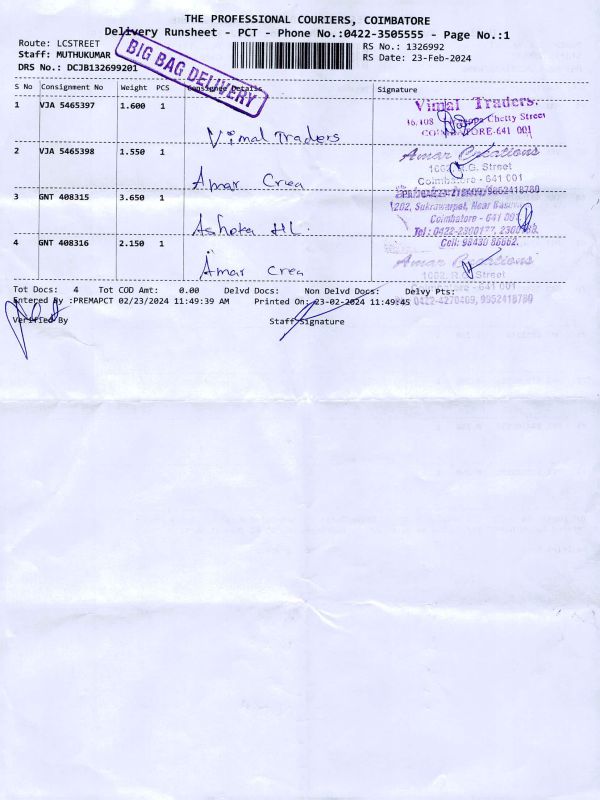 THE PROFESSIONAL COURIERS, COIMBATORE
Delivery Runsheet - PCT - Phone No.:0422-3505555 - Page No.:1
Route: LCSTREET
RS No.: 1326992
Staff: MUTHUKUMAR
RS Date: 23-Feb-2024
DRS No.: DCJB132699201
BIG BAG DELIVERY
S No Consignment No Weight PCS Consignee Details Signature
1 VJA 5465397 1.600 1
Vimal Traders
Vimal Traders.
Chetty Street
COIMBATORE-641 001
2 VJA 5465398 1.550 1
Amar Crea
Amar Creations
R.G. Street
Coimbatore - 641 001
3 GNT 408315 3.650 1
Ashoka HL.
Coimbatore - 641 001
Cell: 98430 86662.
4 GNT 408316 2.150 1
Amar Crea
Amar Creations
Street
- 641 001
0422-4270469, 9952418780
Tot Docs: 4 Tot COD Amt: 0.00 Delvd Docs: Non Delvd Docs: Delvy Pts:
Entered By :PREMAPCT 02/23/2024 11:49:39 AM Printed On: 23-02-2024 11:49:45
Verified By Staff Signature